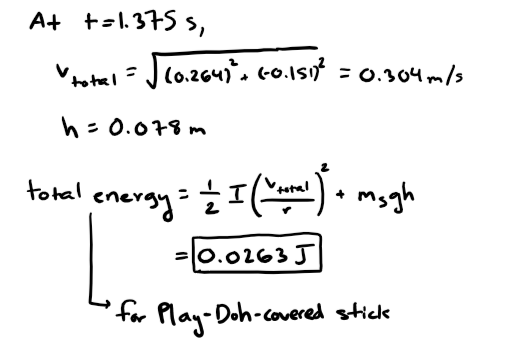 At t=1.375 s,
v_total = √((0.264)² + (-0.151)²) = 0.304 m/s
h = 0.078 m
total energy = 1/2 I (v_total/r)² + m_s g h
= 0.0263 J
for Play-Doh-covered stick